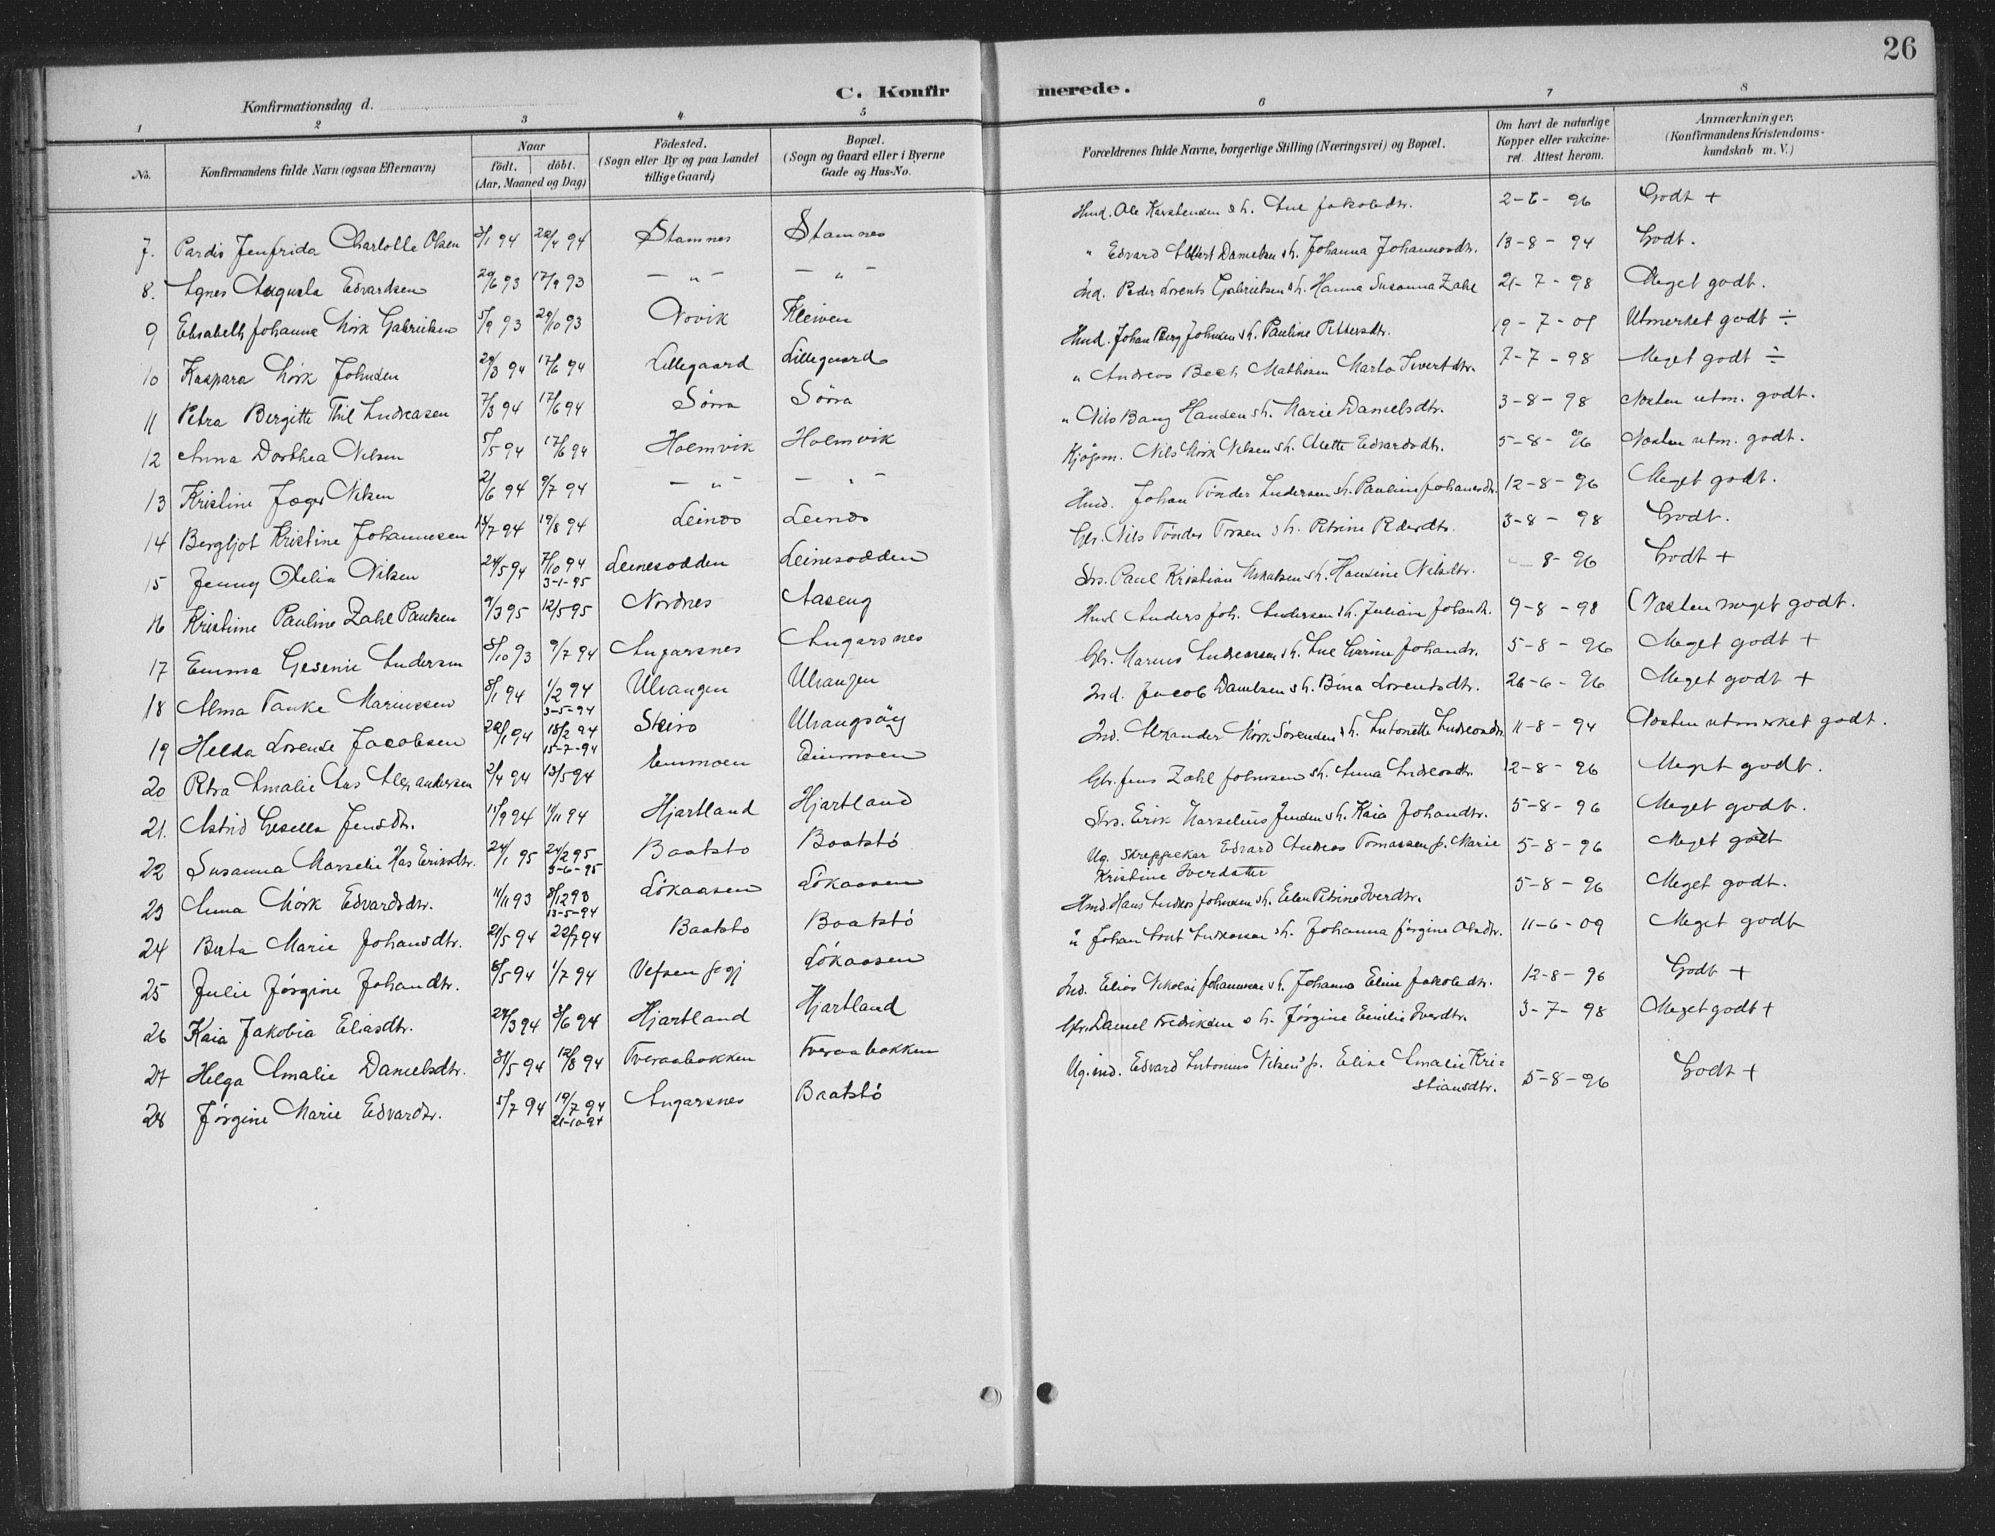 26
C. Konfirmerede.
Konfirmationsdag d.
1 2 3 4 5 6 7 8
No. Konfirmandens fulde Navn (ogsaa Efternavn) Naar født. døbt. (Aar, Maaned og Dag) Fødested. (Sogn eller By og paa Landet tillige Gaard) Bopæl. (Sogn og Gaard eller i Byerne Gade og Hus-No. Forældrenes fulde Navne, borgerlige Stilling (Næringsvei) og Bopæl. Om havt de naturlige Kopper eller vakcineret. Attest herom. Anmærkninger. (Konfirmandens Kristendomskundskab m. V.)
7. Pardis Jenfrida Charlotte Olsen 3/1 94 22/4 94 Stamnes Stamnes Hmd. Ole Karstensen & h. Ane Jakobsdtr. 2-6-96 Godt +
8. Agnes Augusta Edvardsen 29/6 93 17/9 93 — " — — " — " Edvard Albert Danielsen & h. Johanna Johannesdtr. 13-8-94 Godt.
9 Elisabeth Johanna Mörk Gabrielsen 5/9 93 29/10 93 Novik Kleiven Ind. Peder Lorents Gabrielsen & h. Hanna Susanna Zahl 21-7-98 Meget godt.
10 Kaspara Mörk Johnsen 29/3 94 17/6 94 Lillegaard Lillegaard Hmd. Johan Berg Johnsen & h. Pauline Pettersdtr. 19-7-01 Utmerket godt ÷
11 Petra Bergitte Thil Andreasen 7/3 94 17/6 94 Sörra Sörra " Andreas Beck Mathisen Marta Sivertdtr. 7-7-98 Meget godt ÷
12 Anna Dorthea Nilsen 5/5 94 17/6 94 Holmvik Holmvik " Nils Bang Hansen & h. Marie Danielsdtr. 3-8-98 Næsten utm. godt.
13 Kristine Jæger Nilsen 2/6 94 9/7 94 — " — — " — Kjøpm. Nils Mörk Nilsen & h. Alette Edvardsdtr. 5-8-96 Næsten utm. godt.
14 Bergljot Kristine Johannesen 15/7 94 19/8 94 Leines Leines Hmd. Johan Tönder Andersen & h. Pauline Johansdtr. 12-8-96 Meget godt.
15 Jenny Otelia Nilsen 24/5 94 7/10 94 Leinesodden Leinesodden Gbr. Nils Tönder & h. Petrine Pedersdtr. 3-8-98 Godt.
3-1-95
16 Kristine Pauline Zahl Paulsen 9/3 95 12/5 95 Nordnes Aaseng Strs. Paul Kristian & h. Hansine Nilsdtr. 8-96 Godt +
17 Emma Gesenie Andersen 8/10 93 9/7 94 Angarsnes Angarsnes Hmd Anders Joh. Andersen & h. Juliane Johansdr. 9-8-98 Næsten meget godt.
18 Alma Tanke Mariussen 8/1 94 1/2 94 Ulvangen Ulvangen Gbr. Marius Andreassen & h. Ane Johansdr. 5-8-96 Meget godt +
3-5-94
19 Helda Lorense Jacobsen 22/1 94 18/2 94 Skeiro Ulvangsöy Ind. Jacob Danielsen & h. Bina Lorentsdtr. 26-6-96 Meget godt +
15-7-94
20 Petra Amalie Aas Alexandersen 2/4 94 13/5 94 Einmoen Einmoen Ind. Alexander Mörk Sörensen & h. Antonette Andreasdr. 11-8-94 Næsten utmerket godt.
21. Astrid Gesella Jensdtr. 15/9 94 11/11 94 Hjartland Hjartland Gbr. Jens Zahl Johnsen & h. Anna Andreasdtr. 12-8-96 Meget godt.
22 Susanna Marselie Has Eriksdtr. 24/1 95 24/2 95 Baatstö Baatstö Strs. Erik Marselius Jensen & h. Kaia Johansdtr. 5-8-96 Meget godt.
3-6-95
23 Anna Mörk Edvardsdtr. 11/11 93 8/12 93 Lökaasen Lökaasen Ug. Edvard Andreas Tomassen p. Marie 5-8-96 Meget godt
13-5-94 Kristine Iverdatter
24 Berta Marie Johansdtr. 21/5 94 22/7 94 Baatstö Baatstö Hmd. Hans Andreas Johnsen & h. Elen Petrine Iverdtr. 5-8-96 Meget godt.
25 Julie Jörgine Johansdtr. 8/5 94 1/7 94 Vefsen Lökaasen " Johan Andreassen & h. Johanna Jörgine Olsdtr. 11-6-09 Meget godt
26 Kaia Jakobia Eliasdtr. 24/3 94 3/6 94 Hjartland Hjartland Ind. Elias Nikolai Johannesen & h. Johanna Eline Jakobsdtr. 12-8-96 Godt +
27 Helga Amalie Danielsdtr. 31/5 94 12/8 94 Tveraabakken Tveraabakken Gbr. Daniel Fredriksen & h. Jörgine Emilie Iverdtr. 3-7-98 Meget godt +
28 Jörgine Marie Edvardsdtr. 5/7 94 19/7 94 Angarsnes Baatstö Ug. ind. Edvard Antonius Nilsen p. Elise Amalie Kristiansdtr. 5-8-96 Godt +
21-10-94